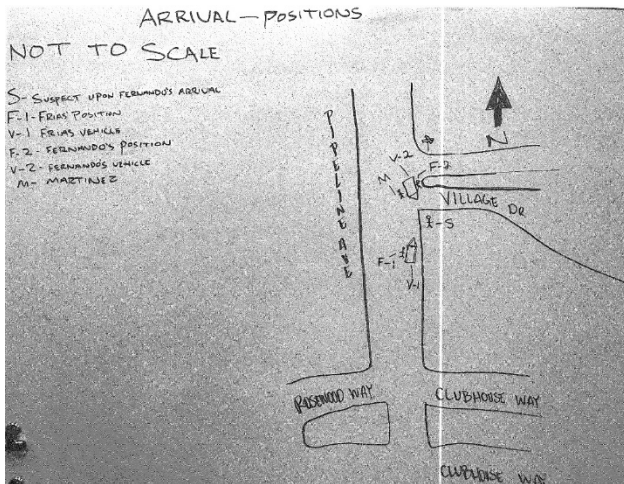 ARRIVAL—POSITIONS
NOT TO SCALE
S- SUSPECT UPON FERNANDO'S ARRIVAL
F-1- FRIAS' POSITION
V-1 FRIAS VEHICLE
F-2- FERNANDO'S POSITION
V-2- FERNANDO'S VEHICLE
M- MARTINEZ
N
PIPELINE AVE
V-2
F-2
M
VILLAGE DR
S
F-1
V-1
ROSEWOOD WAY
CLUBHOUSE WAY
CLUBHOUSE WAY